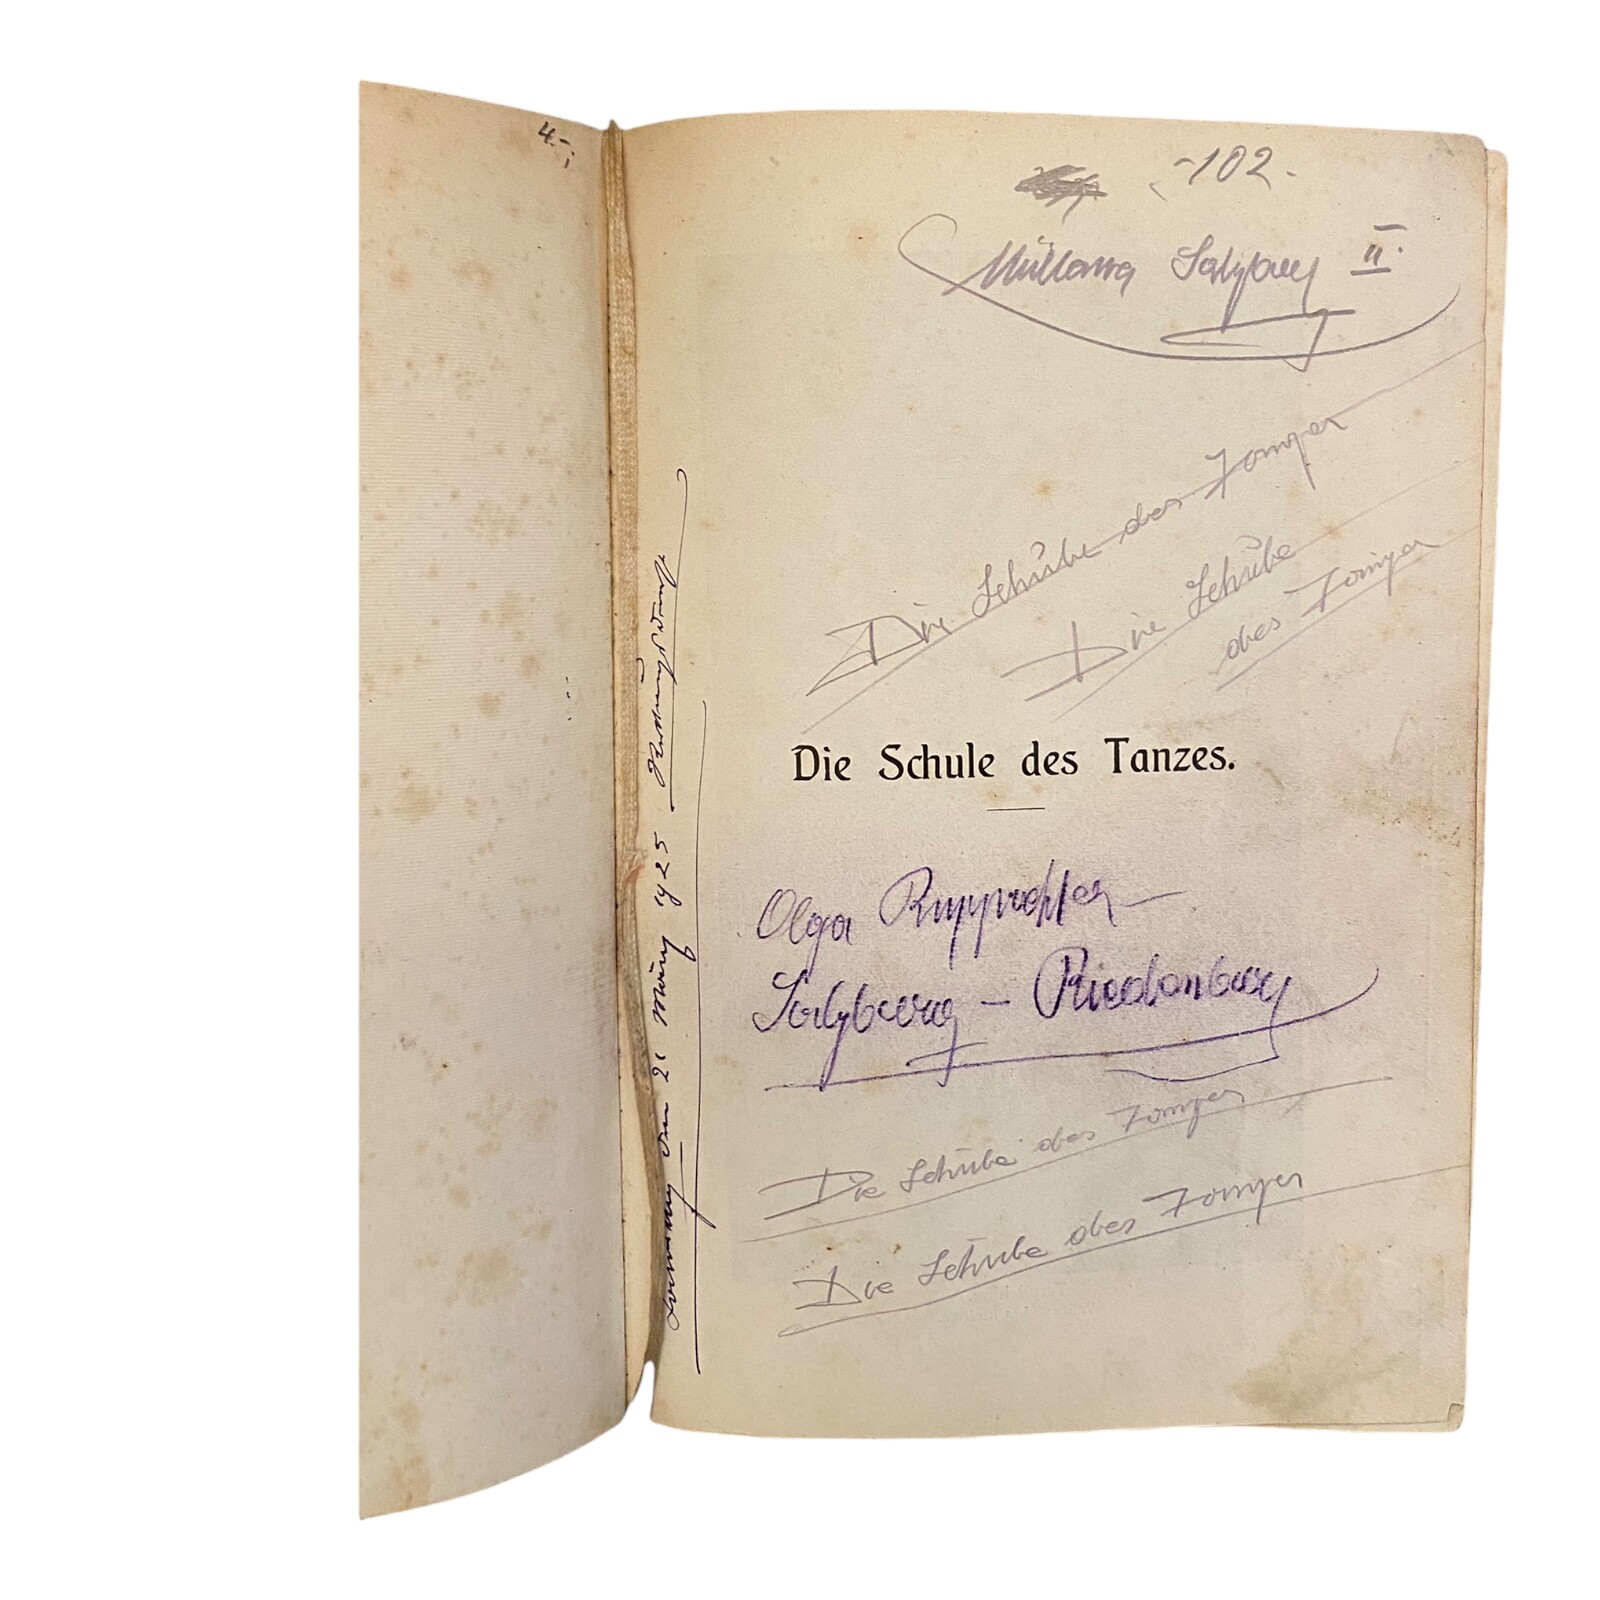 4.-;
-102.
Müllona Salzburg II.
Die Schule des Tanzes
Die Schule
des Tanzes
Die Schule des Tanzes.
Olga Rupprechter
Salzburg - Riedenburg
Die Schule des Tanzes
Die Schule des Tanzes
den 21 März 1925